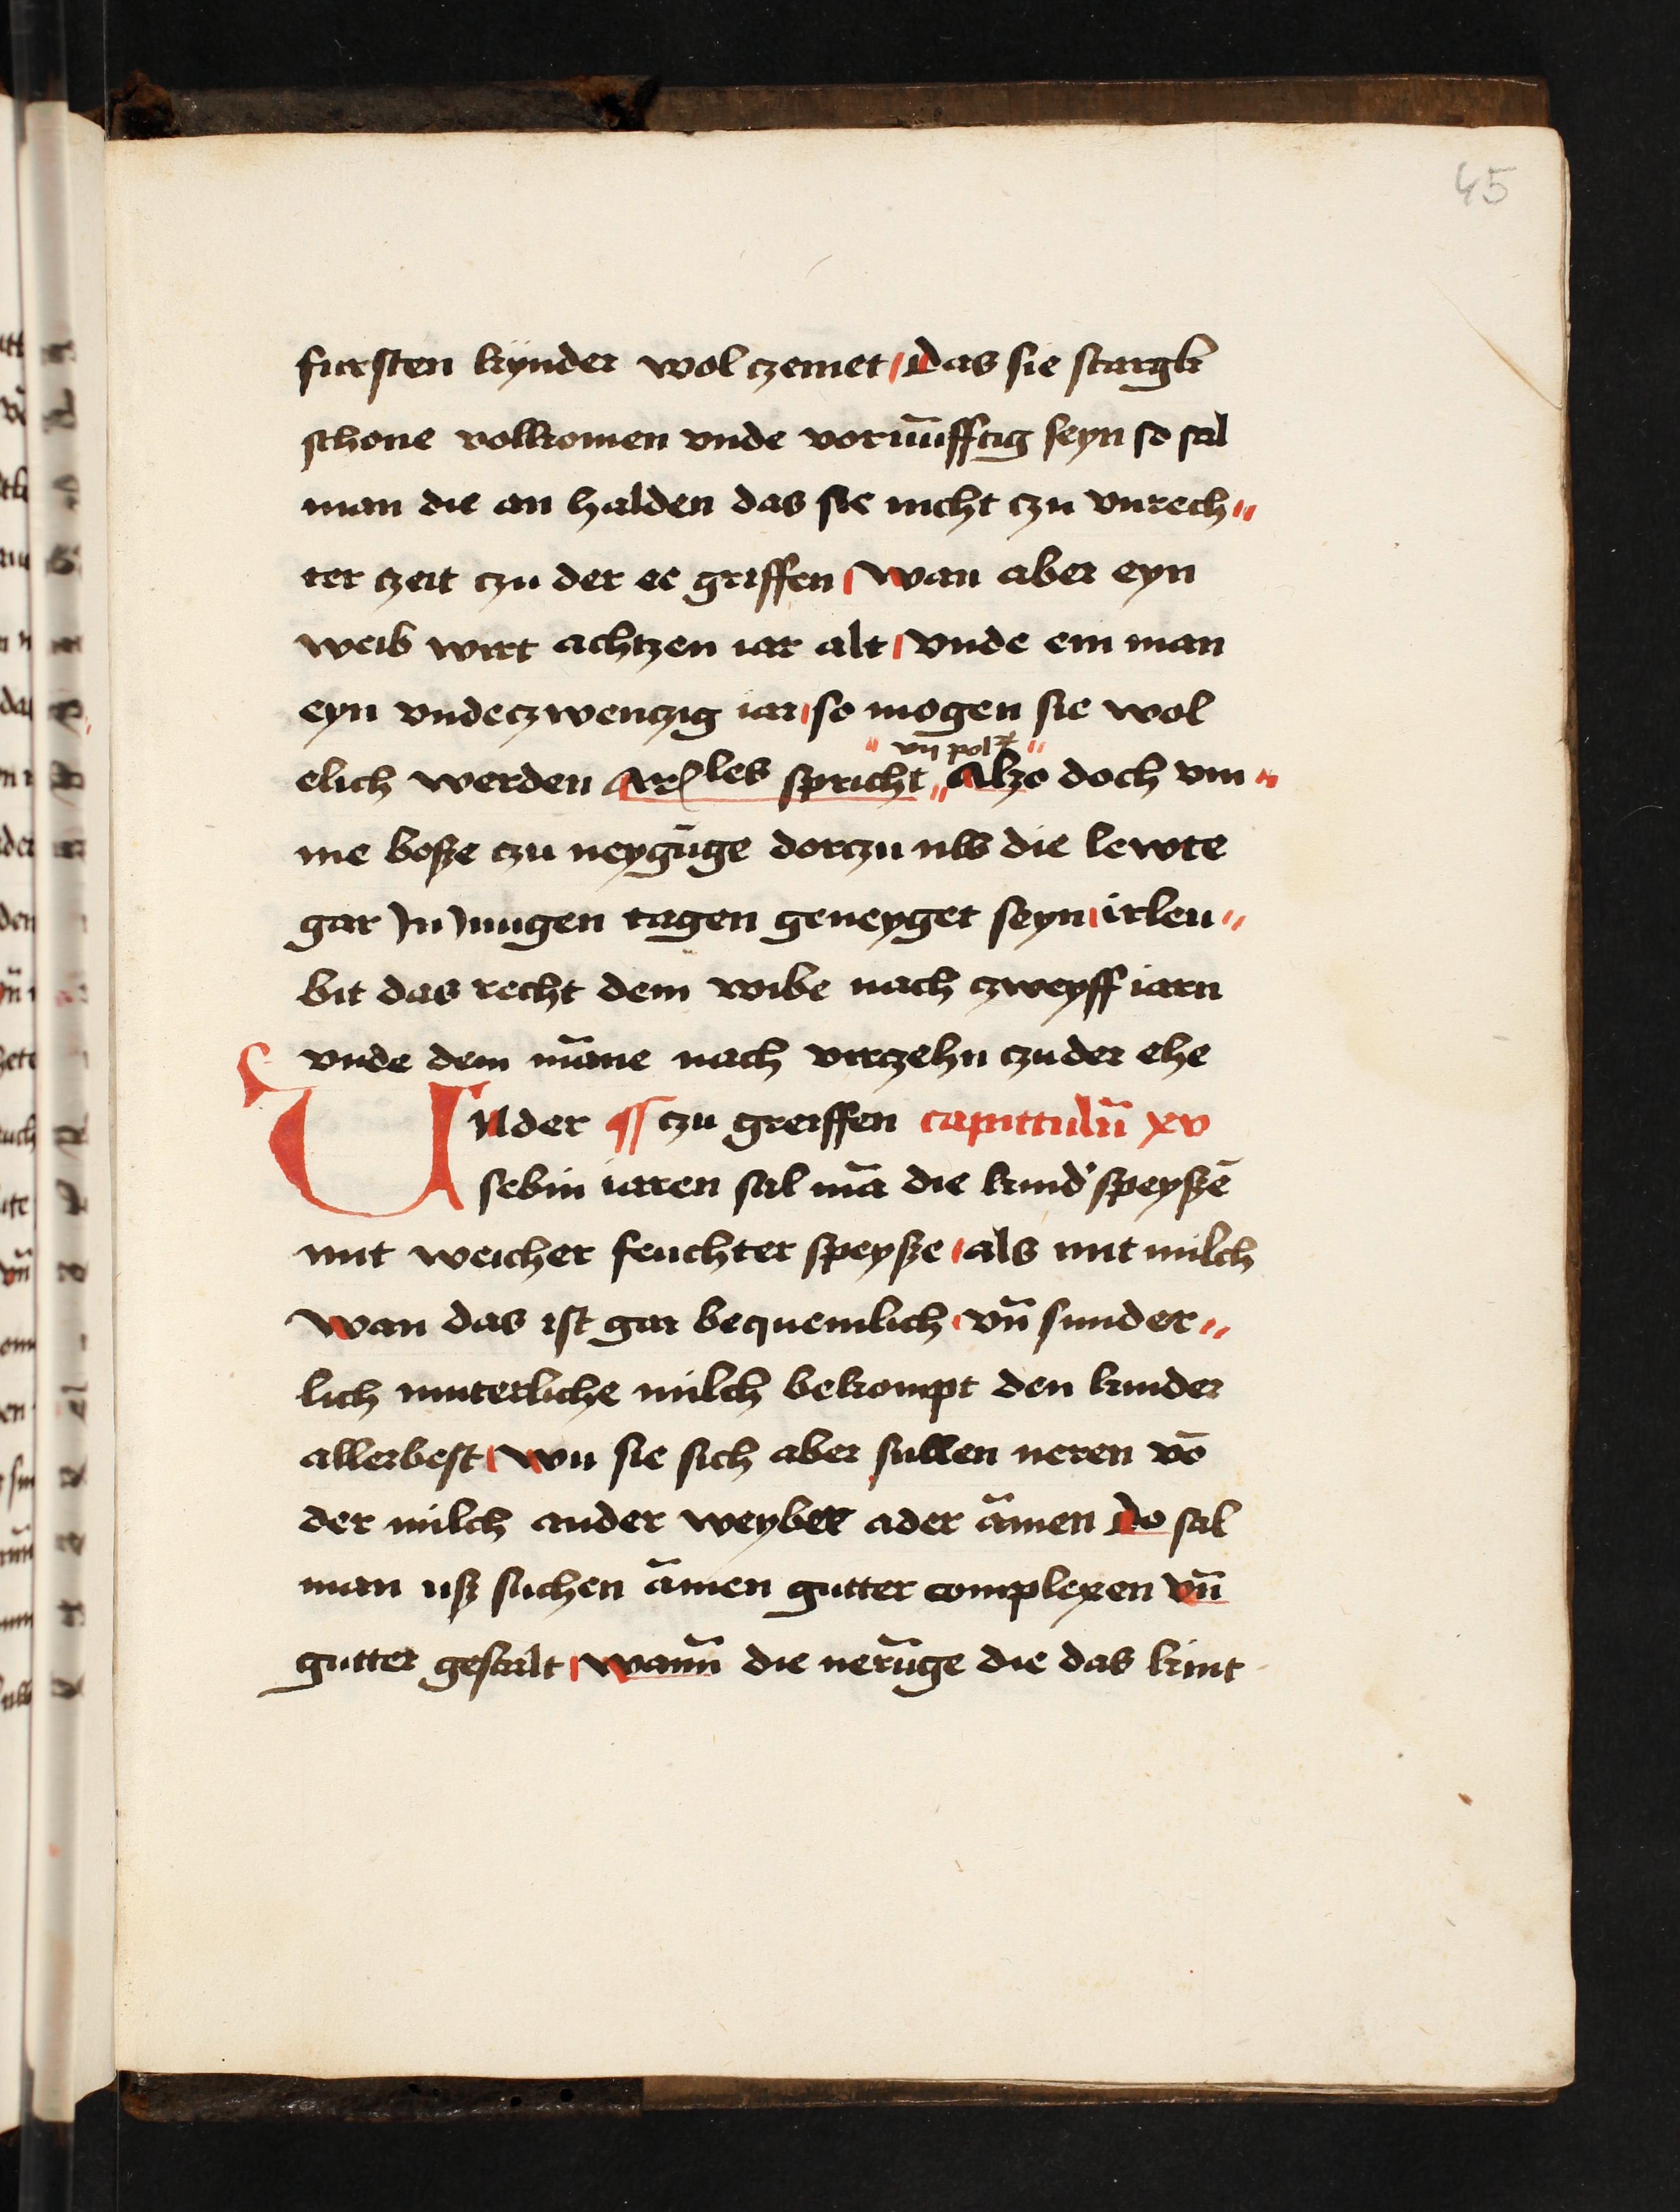 45
fursten kynder wol czemet / Das sie stargk
schone volkomen vnde vornūfftig seyn so sal
man die an halden das sie nicht czu vnrech〃
ter czeit czu der ee griffen / Wan aber eyn
weib wirt achtzen iar alt / vnde ein man
eyn vndeczwenczig iar / so mogen sie wol
vn̄ pol
elich werden Arꝭles spricht 〃 Alzo doch vm〃
me bosze czu neygūge dorczu nw die lewte
gar Jn Jungen tagen geneyget seyn / irleu〃
bit das recht dem wibe nach czweyff iarn
vnde dem māne nach virczehn czu der ehe
Under ¶ czu greiffen capittulū xv
sebin iaren sal mā die kind' speyszē
mit weicher feuchter speysze / als mit milch
Wan das ist gar bequemlich / vn̄ sunder〃
lich muterliche milch bekompt den kinder
allerbest / Wu sie sich aber sullen neren vō
der milch ander weyber ader āmen Do sal
man usz suchen āmen gutter complexen vn̄
gutter gestalt / Wann̄ die nerūge die das kint